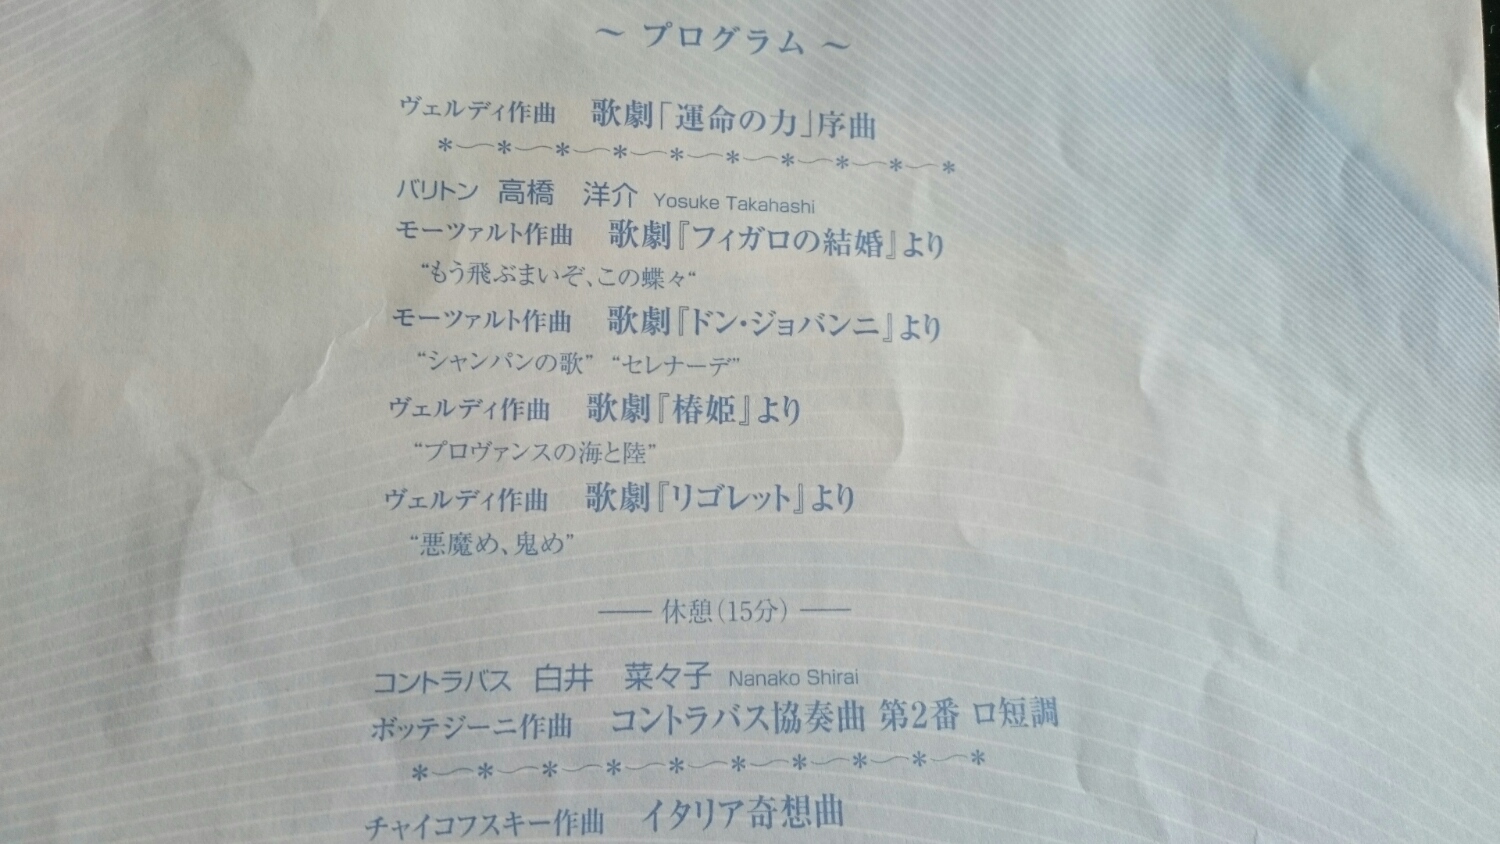 ～ プログラム ～
ヴェルディ作曲　歌劇「運命の力」序曲
＊〜＊〜＊〜＊〜＊〜＊〜＊〜＊〜＊〜＊
バリトン　高橋　洋介　Yosuke Takahashi
モーツァルト作曲　歌劇『フィガロの結婚』より
“もう飛ぶまいぞ、この蝶々“
モーツァルト作曲　歌劇『ドン・ジョバンニ』より
“シャンパンの歌”　“セレナーデ”
ヴェルディ作曲　歌劇『椿姫』より
“プロヴァンスの海と陸”
ヴェルディ作曲　歌劇『リゴレット』より
“悪魔め、鬼め”
―― 休憩（15分） ――
コントラバス　白井　菜々子　Nanako Shirai
ボッテジーニ作曲　コントラバス協奏曲 第2番 ロ短調
＊〜＊〜＊〜＊〜＊〜＊〜＊〜＊〜＊〜＊
チャイコフスキー作曲　イタリア奇想曲